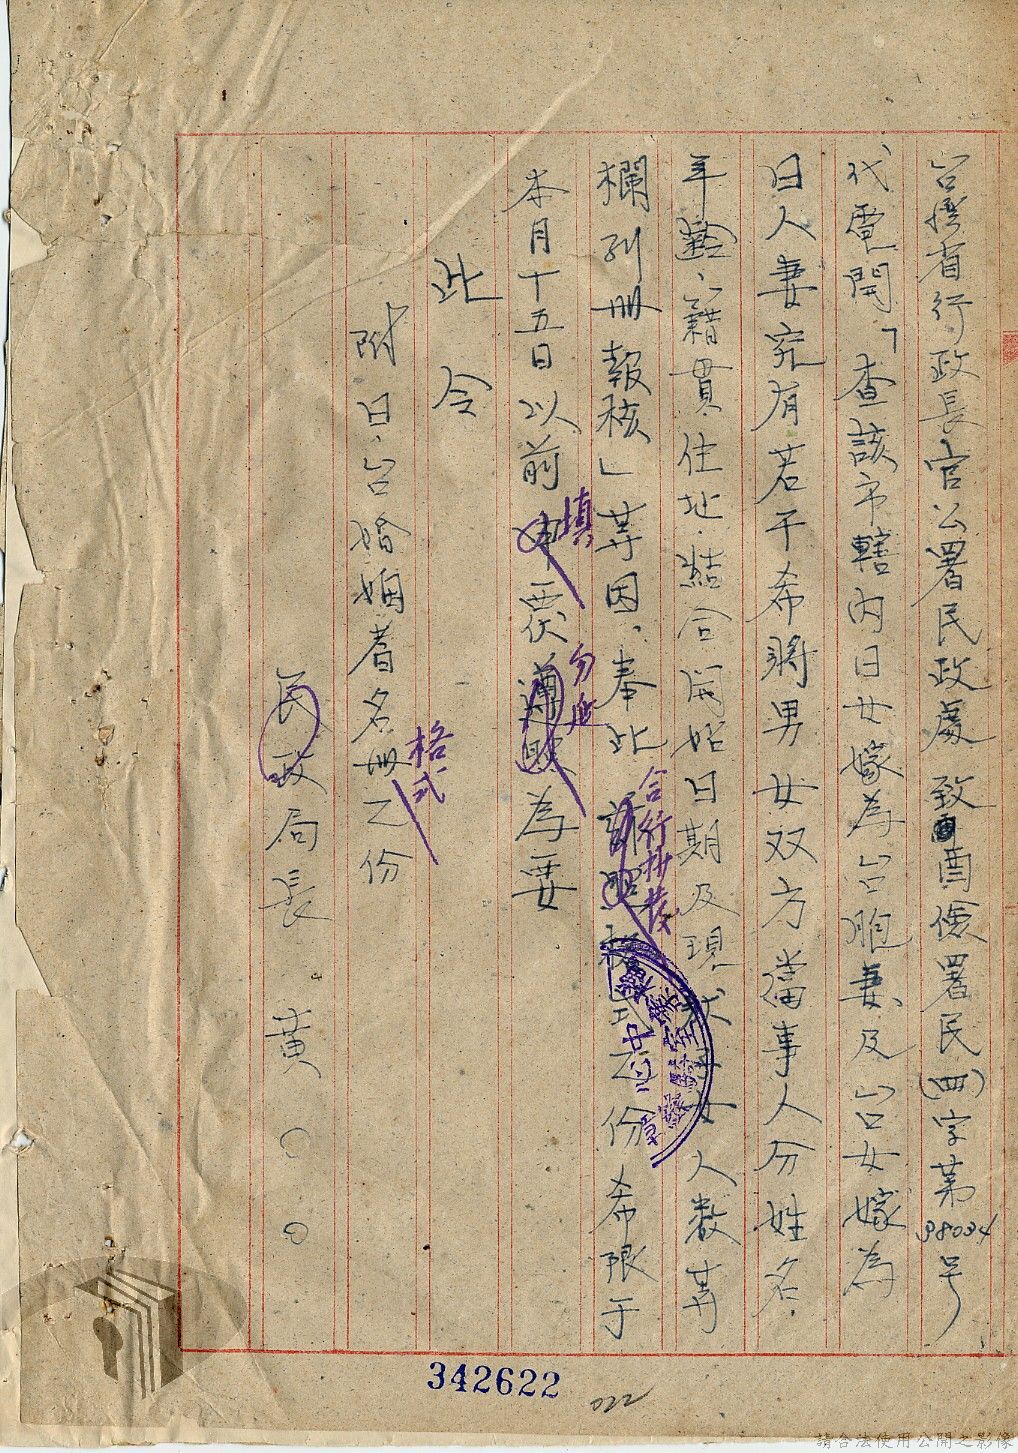 台灣省行政長官公署民政處致酉儉署民(四)字第38034号
代電開、「查該市轄内日女嫁為台胞妻、及台女嫁為
日人妻究有若干希將男女双方當事人分姓名、
年齡、籍貫、住址、結合開始日期及現 子女人数等
欄列册報核」等因、奉此 份希限于
合行抄發
本月十五日以前 填票 勿 為要
此令
附日、台婚姻者名册格式乙份
民政局長 黃○○
342622
022
請合法使用公開之影像